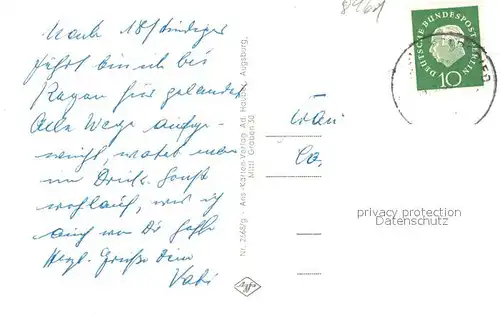 Nach 18 stündiger
Fahrt bin ich bei
Regen hier gelandet
Alle Wege aufge-
weicht, watet man
im Dreck. Sonst
wohlauf, wie ich
auch von Dir hoffe
Herzl. Grüße Dein
Vati
Nr. 2668/g - Ans.-Karten-Verlag Ad. Augsburg,
Mittl. Graben 30
DEUTSCHE BUNDESPOST BERLIN
10
privacy protection
Datenschutz